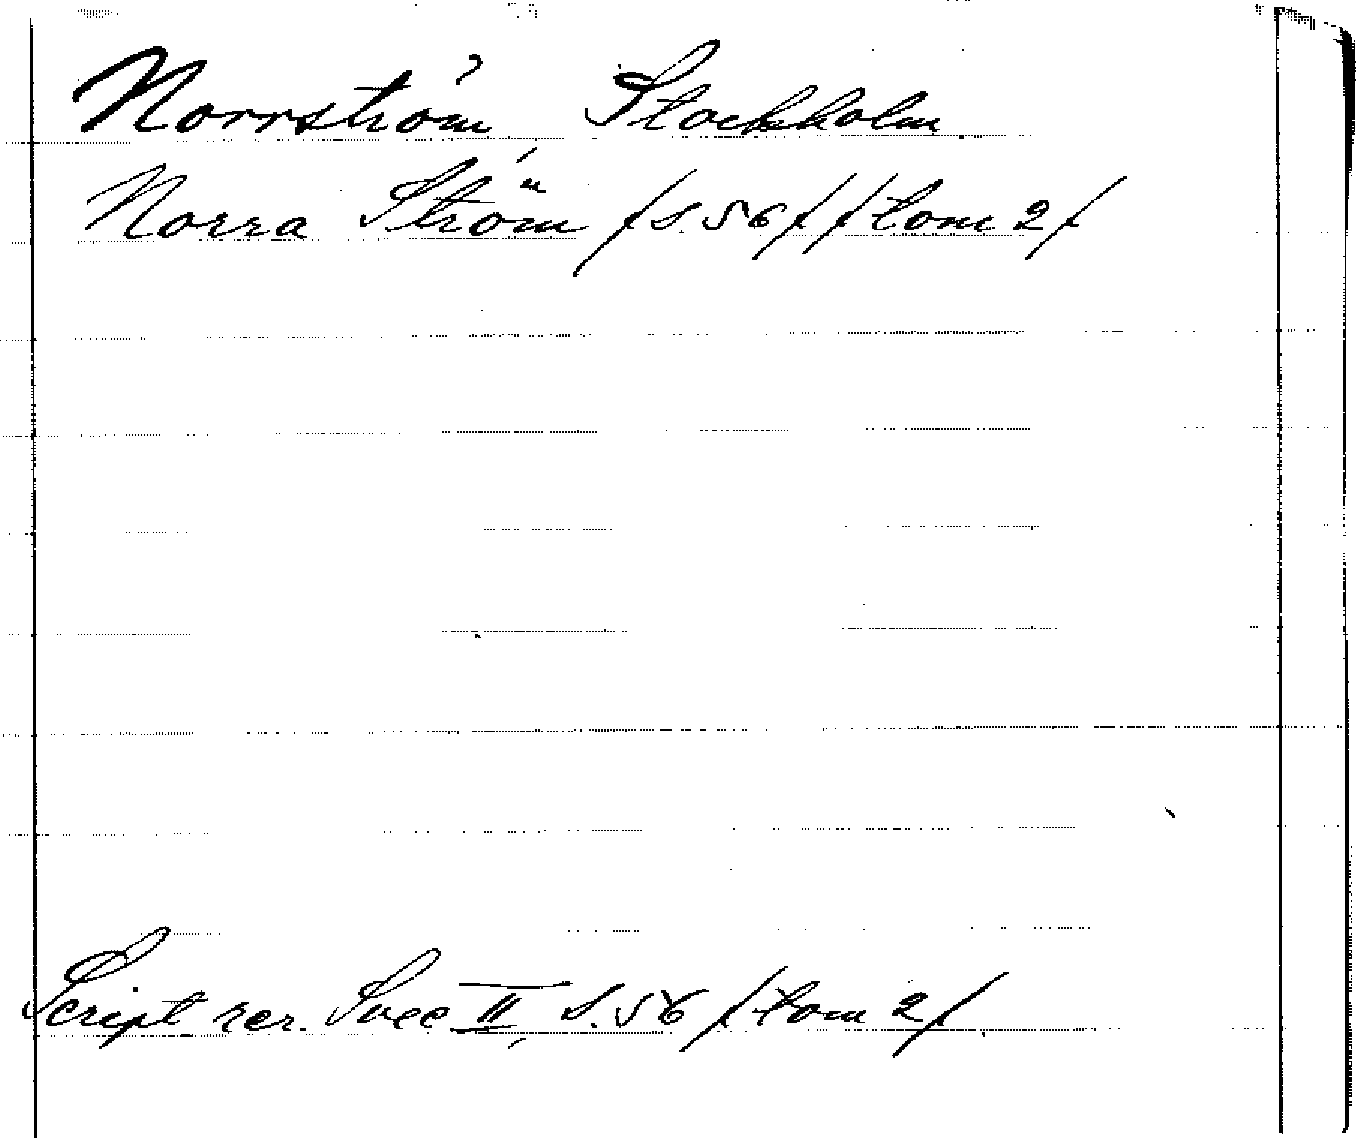 Norrström Stockholm
Norra Ström /s. 56/ /tom 2/
Script. rer. Svec II, s. 56 /tom 2/